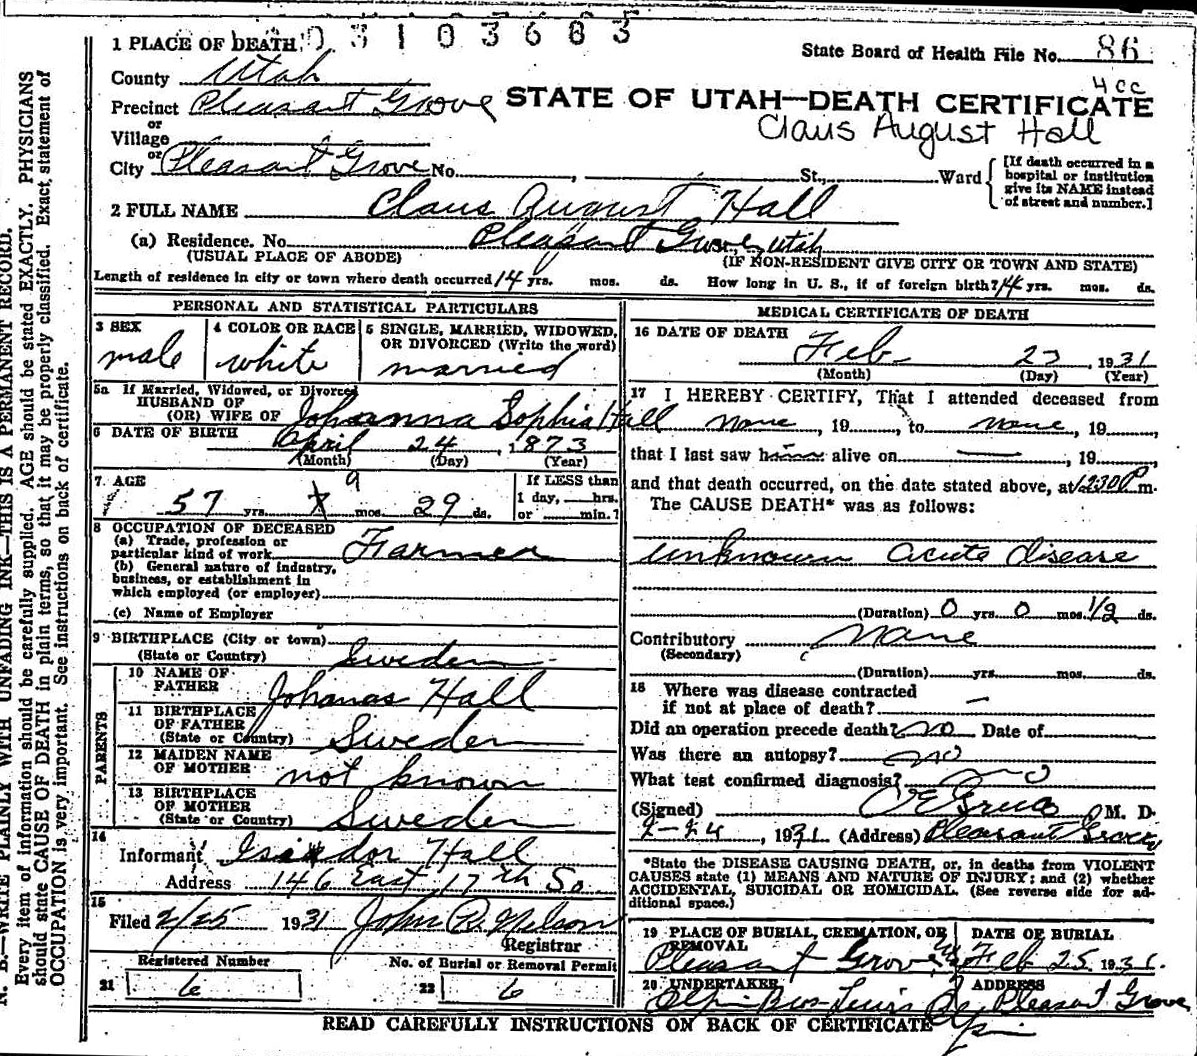 0 3 1 0 3 6 8 5
1 PLACE OF DEATH
State Board of Health File No. 86
County Utah
4 cc
Precinct Pleasant Grove
STATE OF UTAH—DEATH CERTIFICATE
or
Village
Claus August Hall
or
City Pleasant Grove No. , St., Ward
[If death occurred in a
hospital or institution
give its NAME instead
of street and number.]
2 FULL NAME Claus August Hall
(a) Residence. No. Pleasant Grove, Utah
(USUAL PLACE OF ABODE) (IF NON-RESIDENT GIVE CITY OR TOWN AND STATE)
Length of residence in city or town where death occurred 14 yrs. mos. ds. How long in U. S., if of foreign birth? 14 yrs. mos. ds.
PERSONAL AND STATISTICAL PARTICULARS
3 SEX
male
4 COLOR OR RACE
white
5 SINGLE, MARRIED, WIDOWED,
OR DIVORCED (Write the word)
married
5a If Married, Widowed, or Divorced
HUSBAND OF
(OR) WIFE OF Johanna Sophia Hall
6 DATE OF BIRTH
April 24, 1873
(Month) (Day) (Year)
7. AGE
57 yrs. 9 mos. 29 ds.
If LESS than
1 day, hrs.
or min.?
8 OCCUPATION OF DECEASED
(a) Trade, profession or
particular kind of work Farmer
(b) General nature of industry,
business, or establishment in
which employed (or employer)
(c) Name of Employer
9 BIRTHPLACE (City or town)
(State or Country) Sweden
PARENTS
10 NAME OF
FATHER Johanas Hall
11 BIRTHPLACE
OF FATHER
(State or Country) Sweden
12 MAIDEN NAME
OF MOTHER not known
13 BIRTHPLACE
OF MOTHER
(State or Country) Sweden
14
Informant Isidor Hall
Address 146 East, 17th So.
15
Filed 2/25 1931 John R. Nelson
Registrar
Registered Number
21 6
No. of Burial or Removal Permit
22 6
MEDICAL CERTIFICATE OF DEATH
16 DATE OF DEATH
Feb 23, 1931
(Month) (Day) (Year)
17 I HEREBY CERTIFY, That I attended deceased from
none, 19 , to none, 19 ,
that I last saw him alive on — , 19 ,
and that death occurred, on the date stated above, at 1230 P m.
The CAUSE DEATH* was as follows:
unknown acute disease
(Duration) 0 yrs. 0 mos. 1/2 ds.
Contributory None
(Secondary)
(Duration) yrs. mos. ds.
18 Where was disease contracted
if not at place of death? —
Did an operation precede death? no Date of
Was there an autopsy? no
What test confirmed diagnosis? no
(Signed) M. D.
2-24, 1931 (Address) Pleasant Grove
*State the DISEASE CAUSING DEATH, or, in deaths from VIOLENT
CAUSES state (1) MEANS AND NATURE OF INJURY; and (2) whether
ACCIDENTAL, SUICIDAL OR HOMICIDAL. (See reverse side for ad-
ditional space.)
19 PLACE OF BURIAL, CREMATION, OR
REMOVAL
Pleasant Grove
DATE OF BURIAL
Feb 25 1931.
20 UNDERTAKER
ADDRESS
Pleasant Grove
READ CAREFULLY INSTRUCTIONS ON BACK OF CERTIFICATE
N. B.—WRITE PLAINLY WITH UNFADING INK—THIS IS A PERMANENT RECORD.
Every item of information should be carefully supplied. AGE should be stated EXACTLY. PHYSICIANS
should state CAUSE OF DEATH in plain terms, so that it may be properly classified. Exact statement of
OCCUPATION is very important. See instructions on back of certificate.